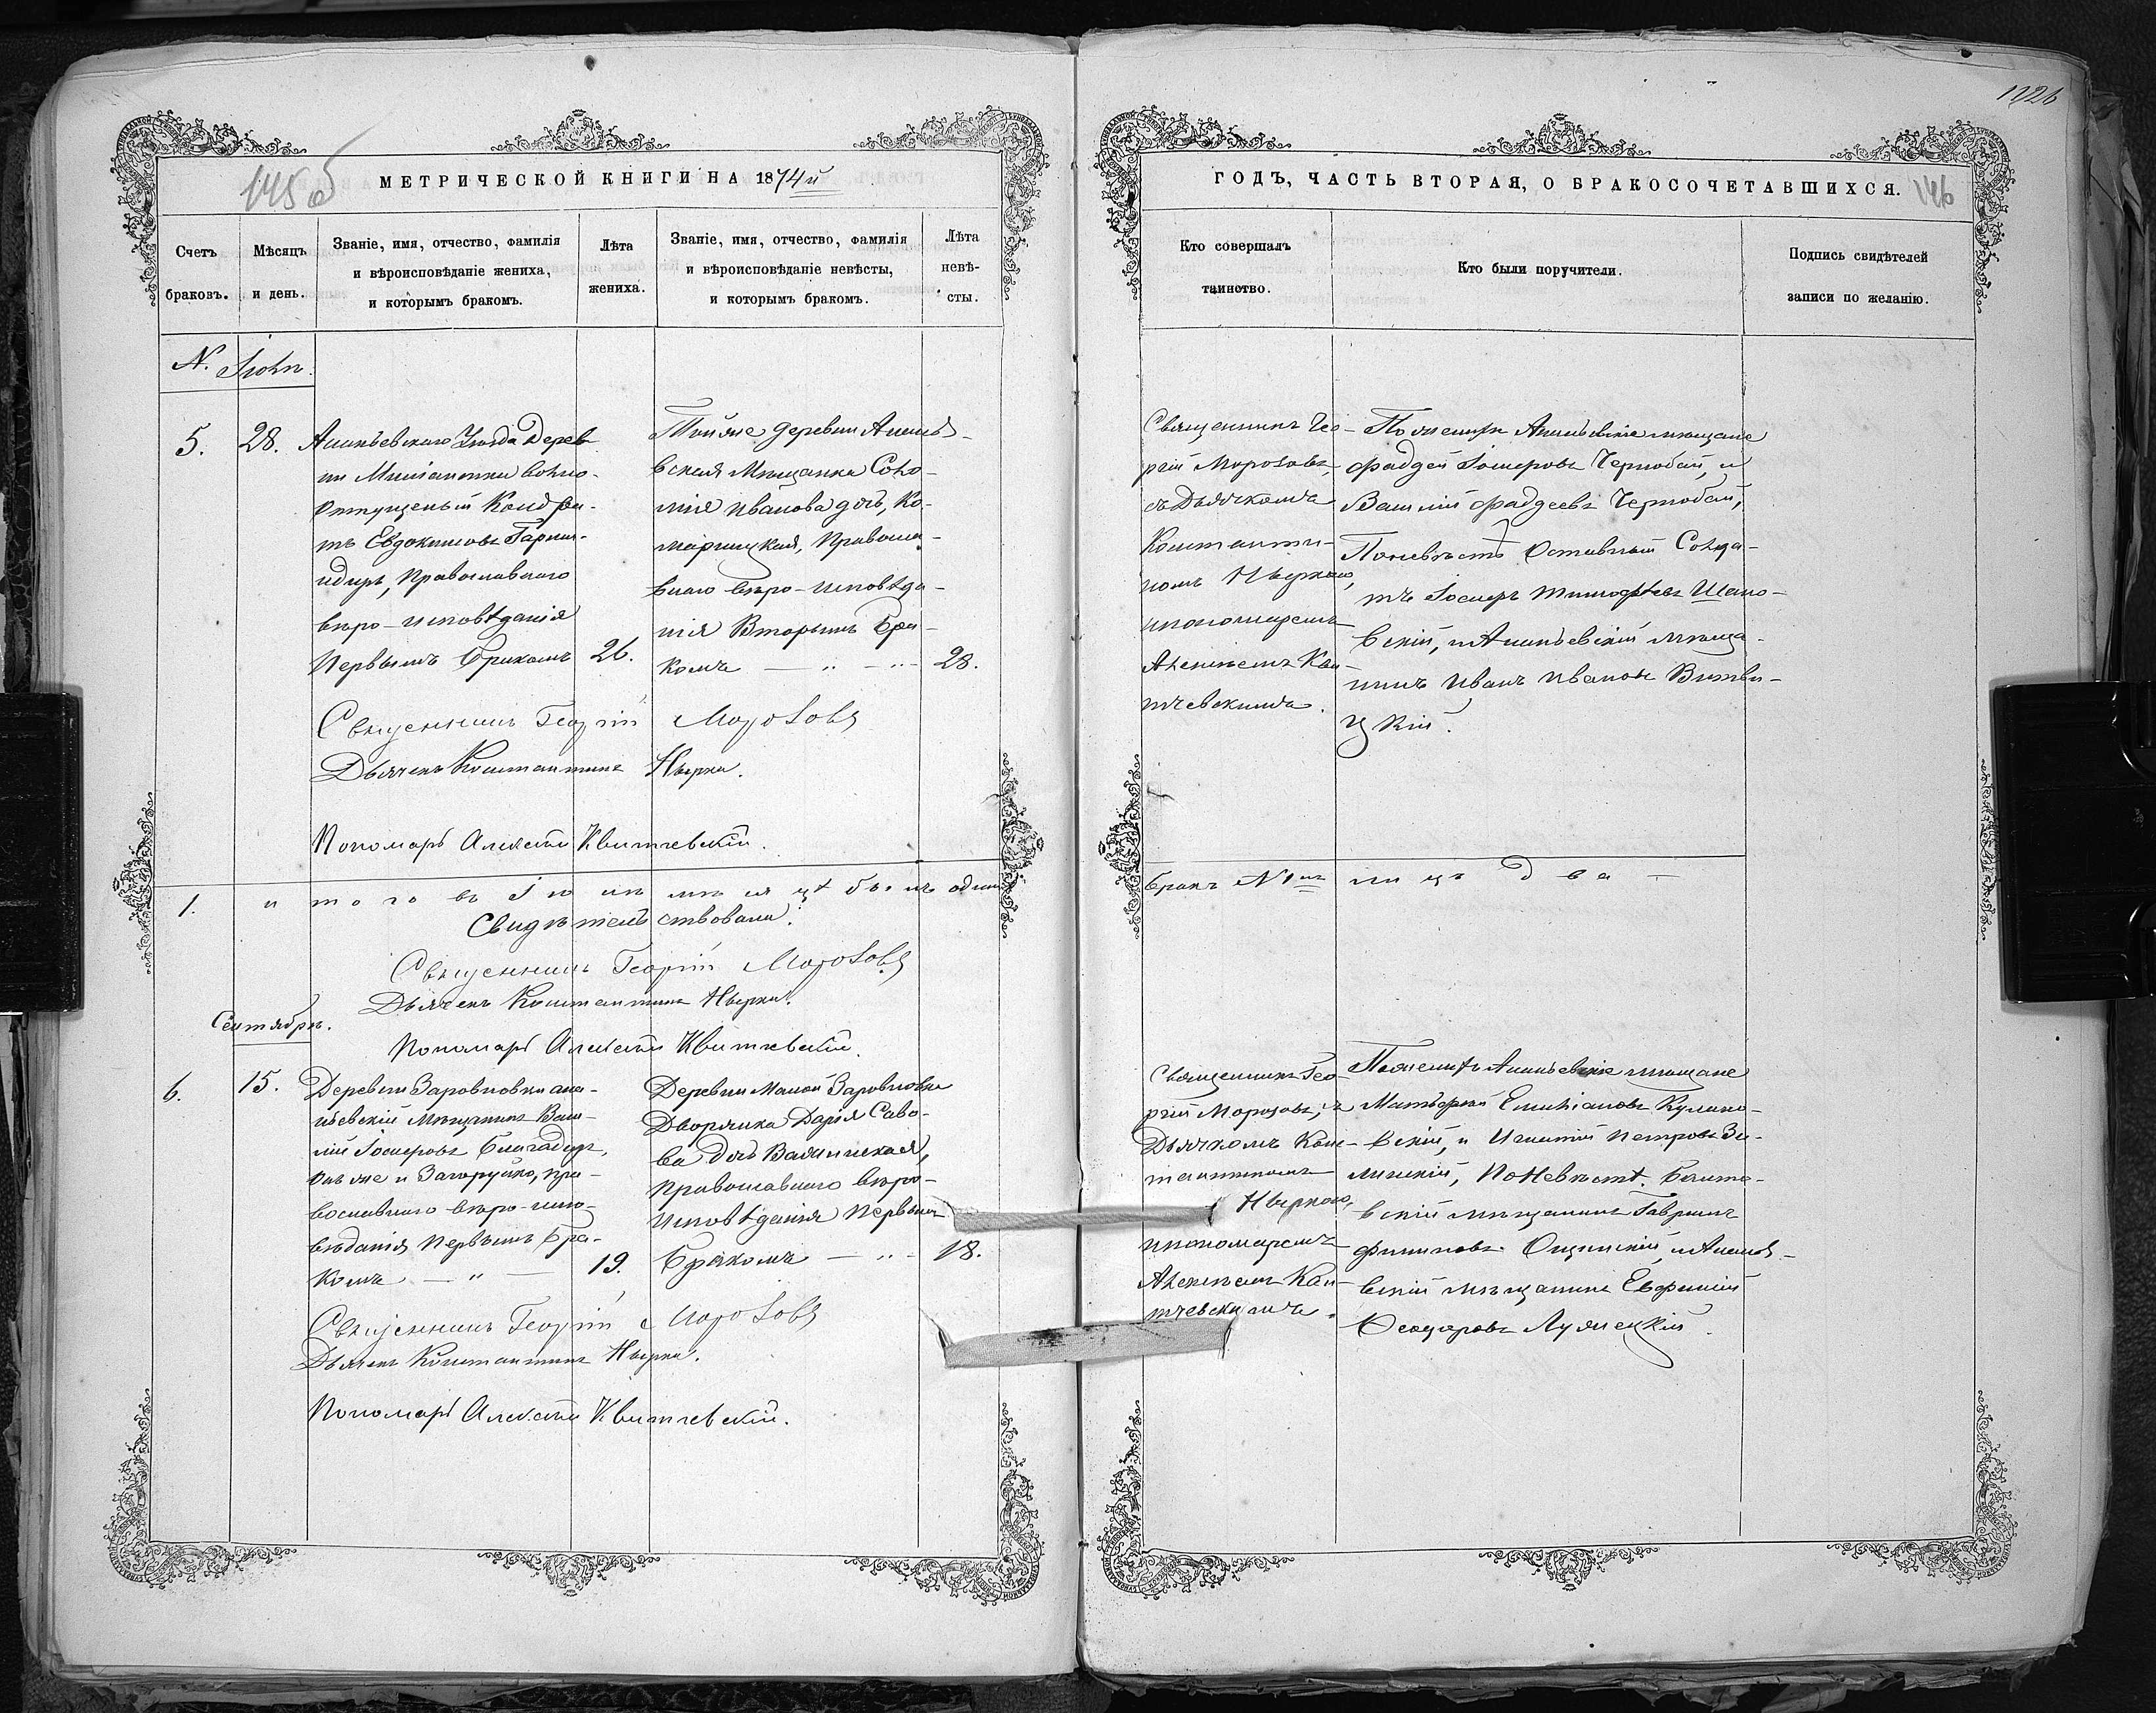 1226
145 об
МЕТРИЧЕСКОЙ КНИГИ НА 1874й
Счетъ браковъ.
Мѣсяцъ и день.
Званіе, имя, отчество, фамилія и вѣроисповѣданіе жениха, и которымъ бракомъ.
Лѣта жениха.
Званіе, имя, отчество, фамилія и вѣроисповѣданіе невѣсты, и которымъ бракомъ.
Лѣта невѣсты.
N. Іюнь.
5.
28.
Ананьевскаго Уѣзда Дерев-
ни
отпущеный Кондра-
тъ Евдокимовъ
Православнаго
вѣро-исповѣданія
Первымъ Бракомъ
26.
Той же деревни Ананье-
вская Мѣщанка Со-
Иванова дочь, Ко-
марницкая, Правосла-
внаго вѣро-исповѣда-
нія Вторымъ Бра-
комъ — „ —
28.
Священникъ Георгій Морозовъ
Дьячекъ Константинъ
Пономарь Алексѣй Квитчевскій.
1.
итого въ Іюнѣ мѣсяцѣ бракъ одинъ
Свидѣтельствовали:
Священникъ Георгій Морозовъ
Дьячекъ Константинъ
Пономарь Алексѣй Квитчевскій.
Сентябрь.
6.
15.
Деревни Заровновки ана-
ньевскій Мѣщанинъ Васи-
лій Іосифовъ
онъ же и Загоруйко, пра-
вославнаго вѣро-испо-
вѣданія Первымъ Бра-
комъ — „ —
19.
Деревни Малой Заровновки
Дворянка Дарія Саво-
ва Дочь
Православнаго вѣро-
исповѣданія Первымъ
Бракомъ — „ —
18.
Священникъ Георгій Морозовъ
Дьячекъ Константинъ
Пономарь Алексѣй Квитчевскій.
ГОДЪ, ЧАСТЬ ВТОРАЯ, О БРАКОСОЧЕТАВШИХСЯ.
146
Кто совершалъ таинство.
Кто были поручители.
Подпись свидѣтелей записи по желанію.
Священникъ Гео-
ргій Морозовъ,
съ Дьячкомъ
Константи-
номъ
и пономаремъ
Алексѣемъ Кви-
тчевскимъ.
По женихѣ Ананьевскіе мѣщане
Фадѣй Іосифовъ Чернобай, и
Василій Фадѣевъ Чернобай,
По невѣстѣ Отставный Солда-
тъ Іосифъ Тимофѣевъ
вскій, и Ананьевскій мѣща-
нинъ Иванъ Ивановъ Витви-
цкій.
бракъ №
Священникъ Гео-
ргій Морозовъ, съ
Дьячкомъ Конс-
тантиномъ
и пономаремъ
Алексѣемъ Кви-
тчевскимъ.
По женихѣ Ананьевскіе мѣщане
Матѳей Емиліановъ Кулико-
вскій, и Игнатій Петровъ Зе-
линскій, По Невѣстѣ. Балто-
вскій мѣщанинъ Гавріилъ
Филиповъ и Ананье-
вскій мѣщанинъ Евфимій
Ѳеодоровъ